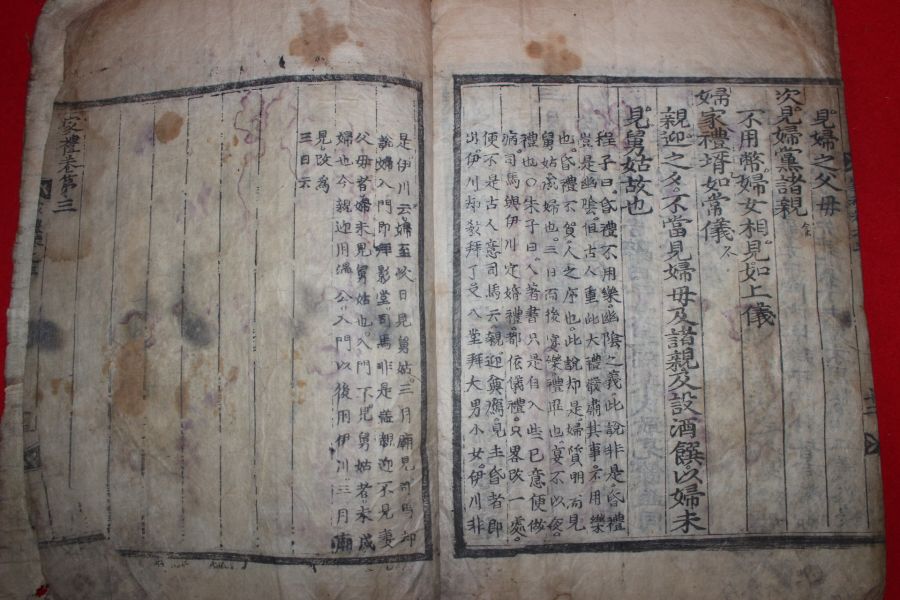 見婦之父母
次見婦黨諸親
不用幣婦女相見如上儀
婦家禮壻如常儀
親迎之夕不當見婦母及諸親及設酒饌以婦未
見舅姑故也
程子曰昏禮不用樂幽陰之義此說非是昏禮
豈是幽陰但古人重此大禮嚴肅其事不用樂
也昏禮不賀人之序也此說却是婦質明而見
舅姑成婦也三日而後宴樂禮畢也宴不以夜
禮也○朱子曰人著書只是自入些己意便做
病司馬與伊川定婚禮都依儀禮只畧改一處
便不是古人意司馬云親迎奠鴈見主昏者即
出伊川却敎拜了又入堂拜大男小女伊川非
是伊川云婦至次日見舅姑三月廟見司馬却
說婦入門即拜影堂司馬非是盖親迎不見妻
父母者婦未見舅姑也入門不見舅姑者未成
婦也今親迎用溫公入門以後用伊川三月廟
見改爲
三日云
家禮卷第三